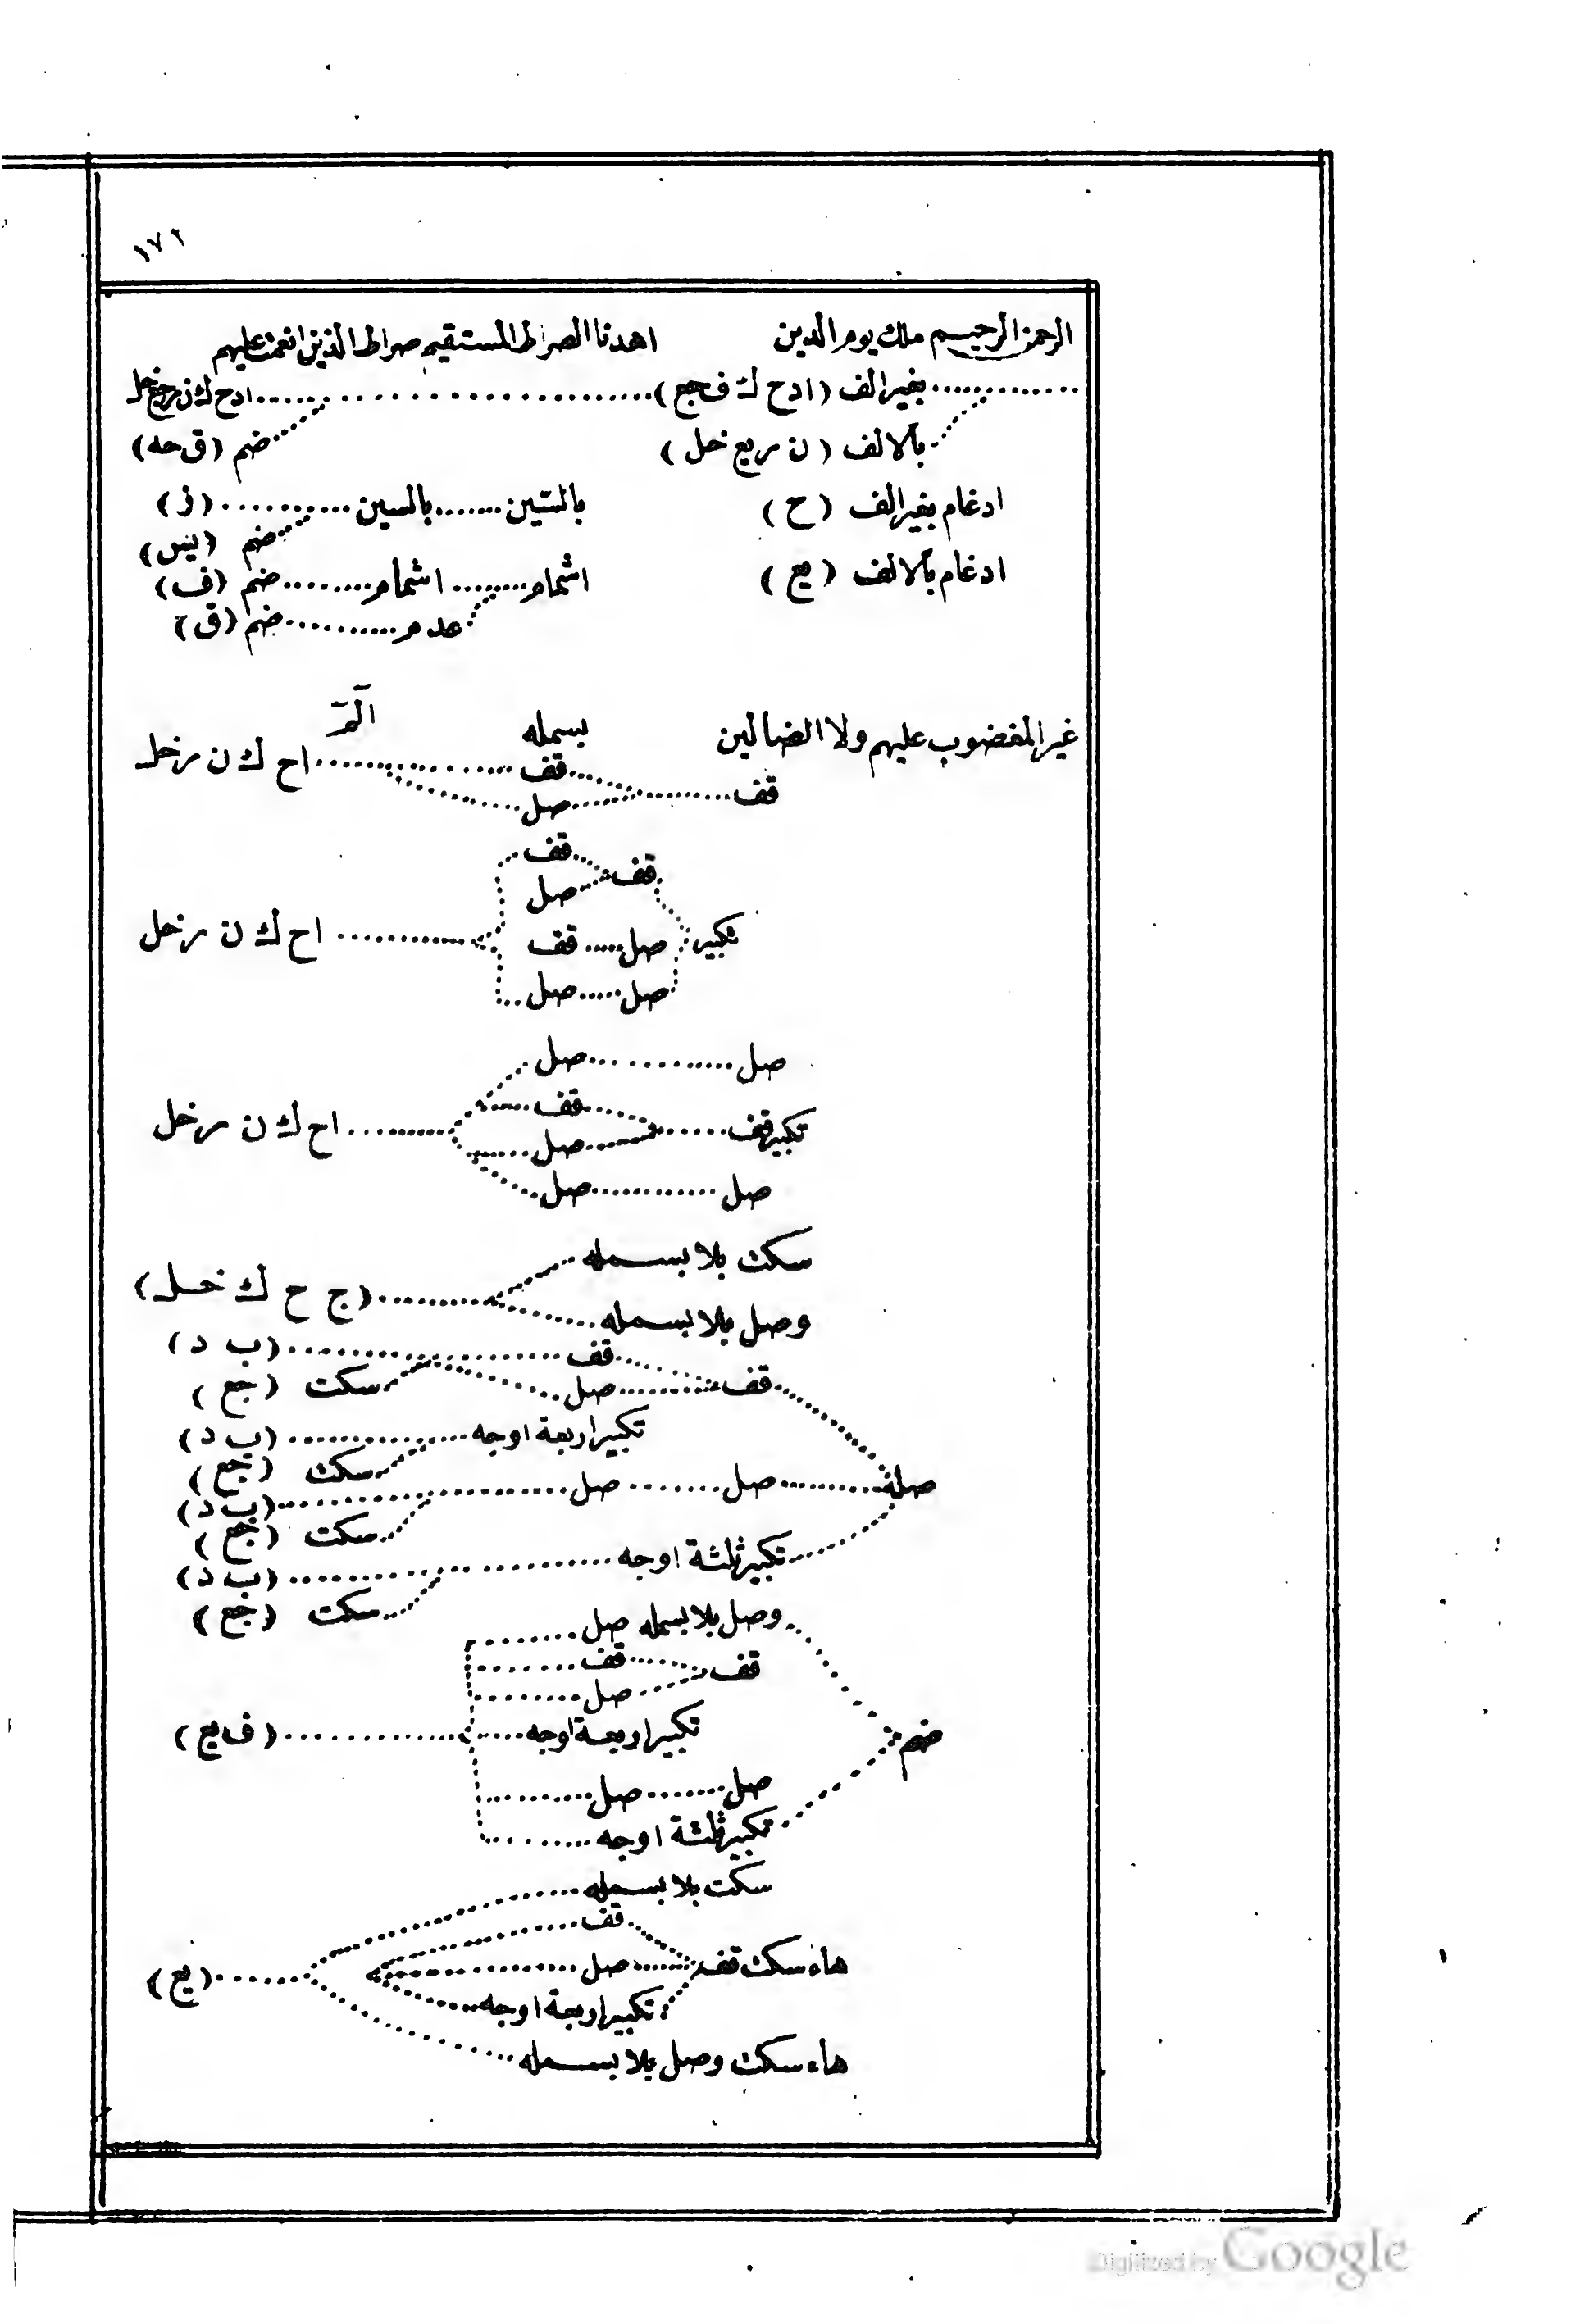 ١٧٢
الرحمن الرحيم ملك يوم الدين اهدنا الصراط المستقيم صراط الذين انعمت عليهم
بغير الف (ادح ك ف جع) ادح ك ن
بآلالف (ن ر يع خل) ضم (ق حه)
ادغام بغير الف (ح) بالسّين بالسين (ز)
ضم (يس)
ادغام بآلالف (يع) اشمام اشمام ضم (ف)
عدم ضم (ق)
غير المغضوب عليهم ولا الضالين بسمله آلمّ
قف قف اح ك ن ر خل
صل
قف قف
صل
تكبير صل قف اح ك ن ر خل
صل صل
صل صل
تكبير قف قف اح ك ن ر خل
صل
صل صل
سكت بلا بسمله
(ج ح ك خل)
وصل بلا بسمله
قف قف (ب د)
صل سكت (جع)
تكبير اربعة اوجه (ب د)
سكت (جع)
صله صل صل (ب د)
سكت (جع)
تكبير ثلثة اوجه (ب د)
سكت (جع)
وصل بلا بسمله صل
قف قف
صل
ضم تكبير اربعة اوجه (ف يع)
صل صل
تكبير ثلثة اوجه
سكت بلا بسمله
قف
هاء سكت قف صل (يع)
تكبير اربعة اوجه
هاء سكت وصل بلا بسمله
Digitized by Google